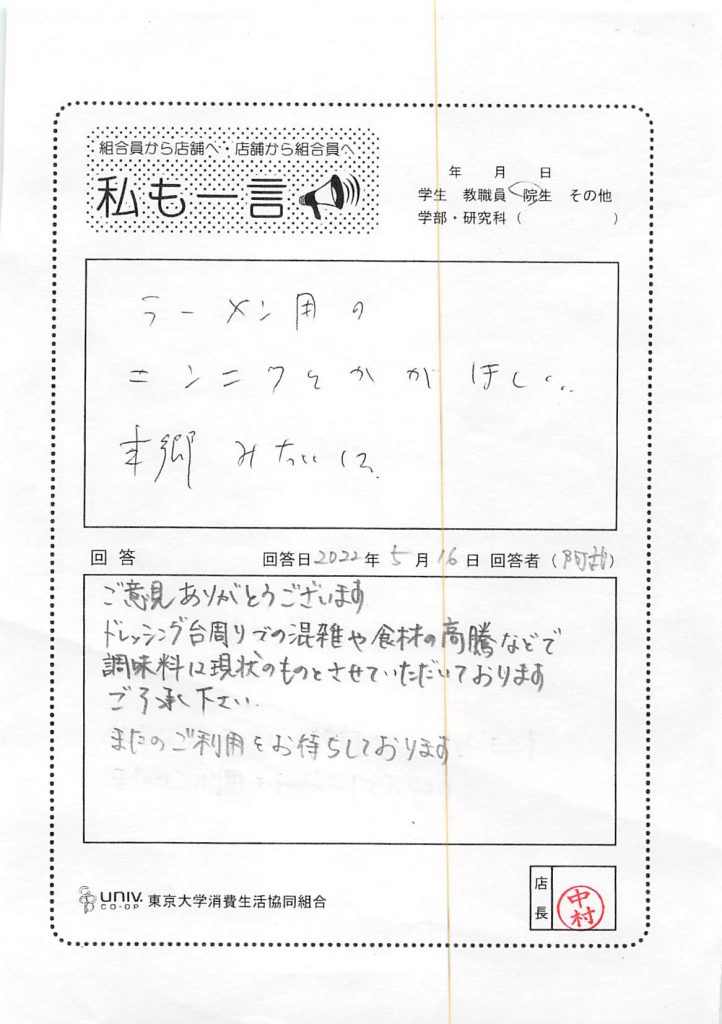 組合員から店舗へ・店舗から組合員へ
私も一言
年 月 日
学生 教職員 院生 その他
学部・研究科( )
ラーメン用の
ニンニクとかがほしい..
本郷みたいに
回答 回答日2022年5月16日 回答者(阿部)
ご意見ありがとうございます
ドレッシング台周りでの混雑や食材の高騰などで
調味料は現状のものとさせていただいております
ご了承下さい.
またのご利用をお待ちしております
UNIV. CO-OP 東京大学消費生活協同組合
店長
中村